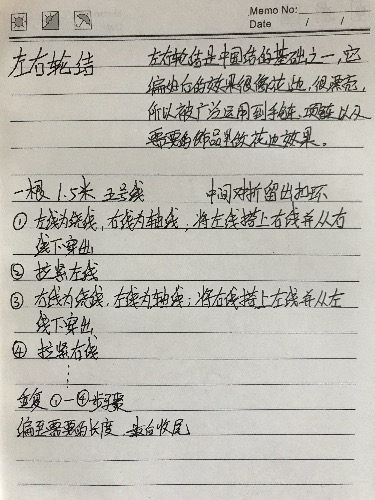 Memo No:
Date / /
左右轮结
左右轮结是中国结的基础之一，它
编出的效果很像花边，很漂亮，
所以被广泛运用到手链、项链以及
需要的饰品类似花边效果。
一根 1.5米 五号线 中间对折留出扣环
① 左线为绕线，右线为轴线；将左线搭上右线并从右
线下穿出
② 拉紧左线
③ 右线为绕线，左线为轴线；将右线搭上左线并从左
线下穿出
④ 拉紧右线
重复①—④步骤
编至需要的长度 收尾